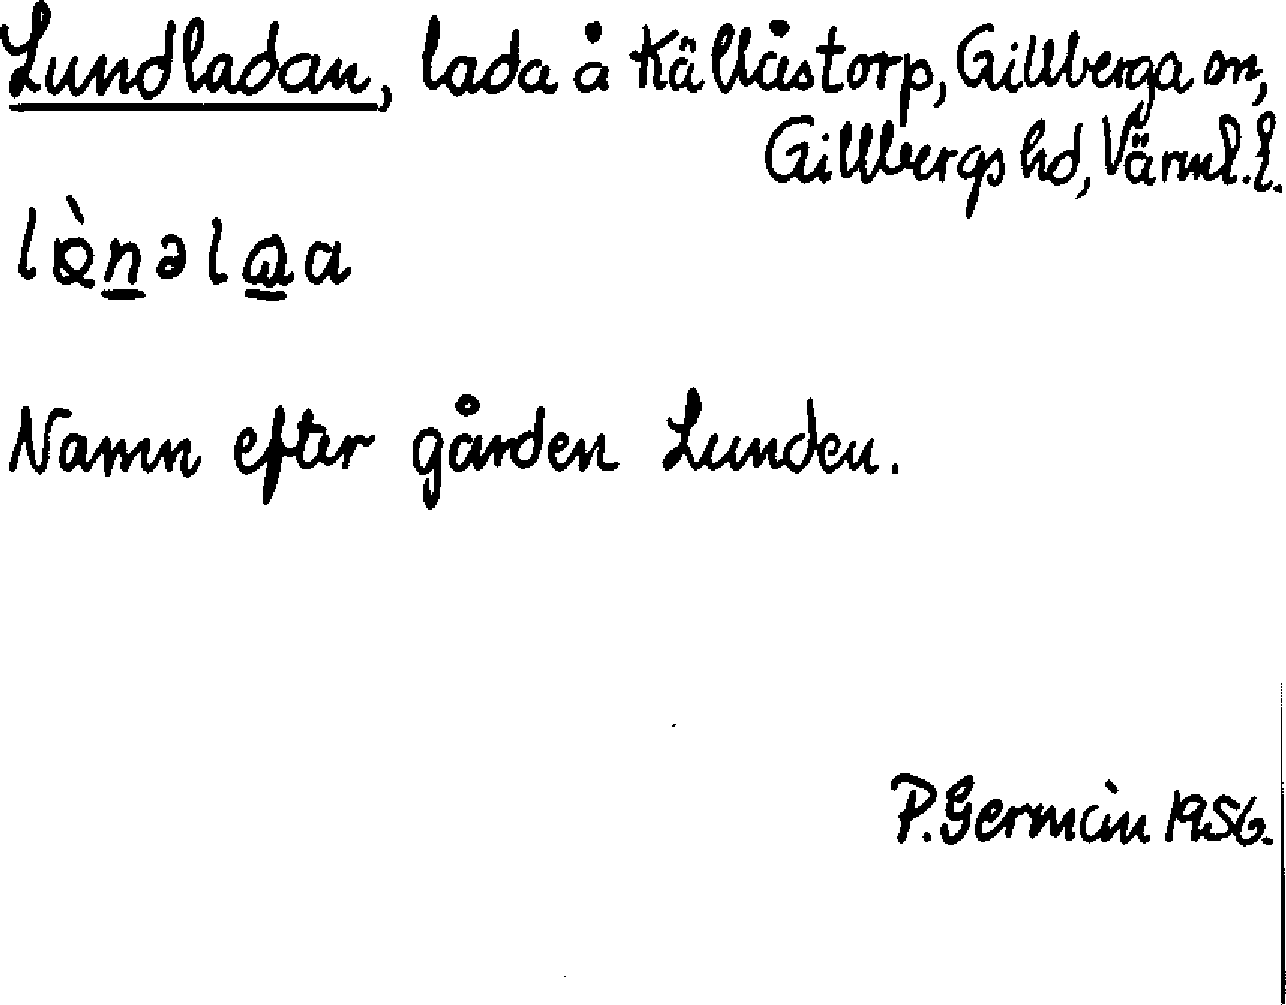 Lundladan, lada å Källåstorp, Gillberga sn,
Gillbergs hd, Värml. l.
Namn efter gården Lunden.
P. Germain 1956.